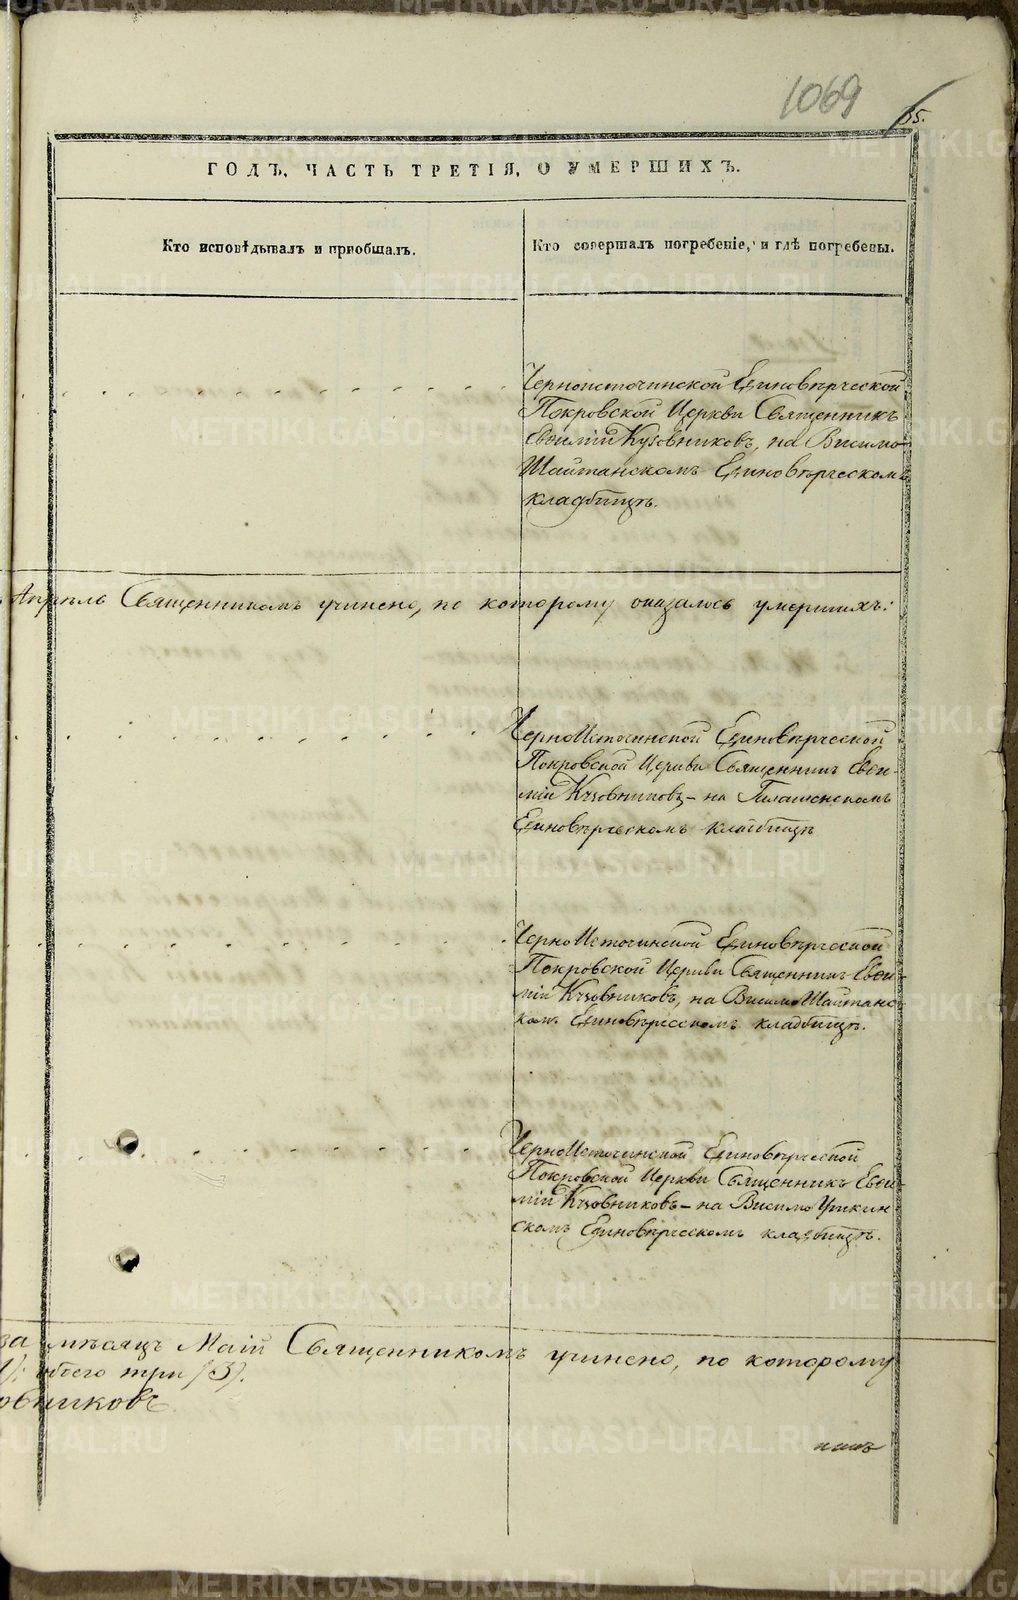 1069
65.
ГОДЪ, ЧАСТЬ ТРЕТІЯ, О УМЕРШИХЪ.
Кто исповѣдывалъ и пріобщалъ.
Кто совершалъ погребеніе, и гдѣ погребены.
Черноисточинской Единовѣрческой
Покровской Церкви Священникъ
Евѳимій Кузовниковъ, на Висимо-
Шайтанскомъ Единовѣрческомъ
кладбищѣ.
Апрѣль Священникомъ учинено, по которому оказалось умершихъ:
ЧерноИсточинской Единовѣрческой
Покровской Церкви Священникъ Евѳи-
мій Кузовниковъ – на
Единовѣрческомъ кладбищѣ
ЧерноИсточинской Единовѣрческой
Покровской Церкви Священникъ Евѳи-
мій Кузовниковъ, на ВисимоШайтанс-
ком. Единовѣрческомъ кладбищѣ.
ЧерноИсточинской Единовѣрческой
Покровской Церкви Священникъ Евѳи-
мій Кузовниковъ – на Висимо Уткин
скомъ Единовѣрческомъ кладбищѣ.
за мѣсяцъ Маій Священникомъ учинено, по которому
обоего три (3).
овниковъ
METRIKI.GASO-URAL.RU